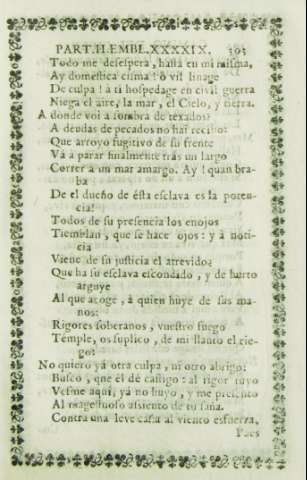 PART.II.EMBL.XXXXIX. 305
Todo me desespera, hasta en mi misma,
Ay domestica cisma! ò vil linage
De culpa! à ti hospedage en civil guerra
Niega el aire, la mar, el Cielo, y tierra.
A donde voi à sombra de texados?
A deudas de pecados no hai recibo:
Que arroyo fugitivo de su frente
Và à parar finalmente tràs un largo
Correr à un mar amargo. Ay! quan bra-
ba
De el dueño de ésta esclava es la poten-
cia!
Todos de su presencia los enojos
Tiemblan, que se hace ojos: y à noti-
cia
Viene de su justicia el atrevido,
Que ha su esclava escondido, y de hurto
arguye
Al que acoge, à quien huye de sus ma-
nos:
Rigores soberanos, vuestro fuego
Témple, os suplico, de mi llanto el rie-
go:
No quiero yà otra culpa, ni otro abrigo:
Busco, que él dé castigo: al rigor tuyo
Vesme aquí, yà no huyo, y me presento
Al magestuoso assiento de tu saña.
Contra una leve caña al viento esfuerza,
Pues